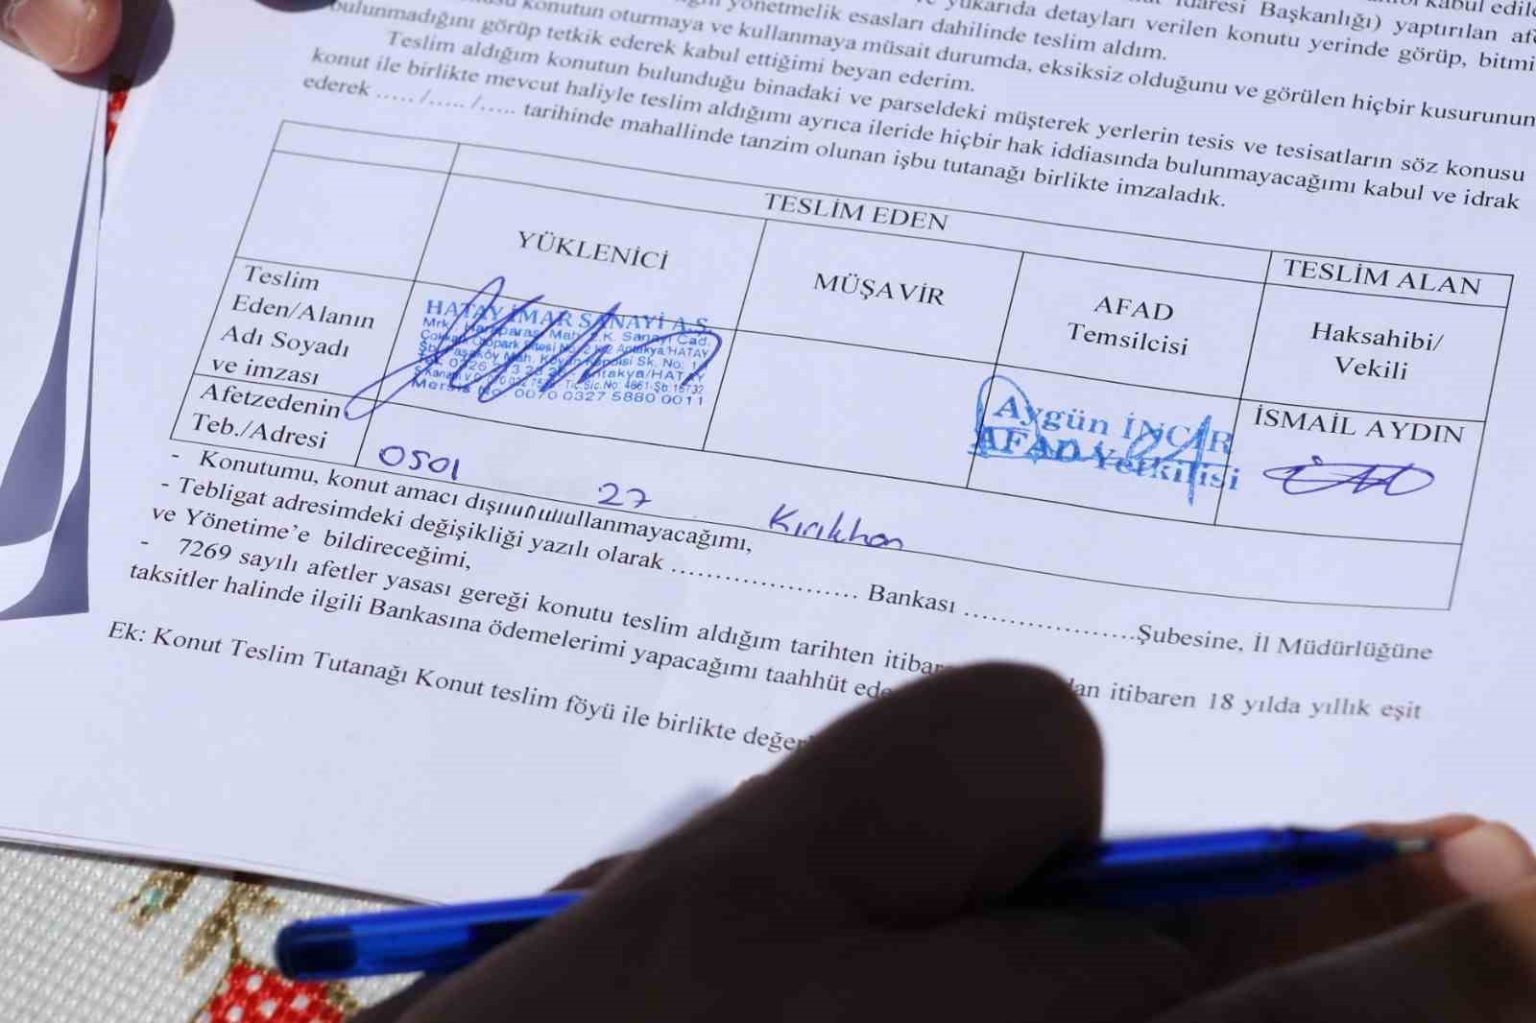 yukarıda detayları verilen konutu yerinde görüp, bitmi
İdaresi Başkanlığı) yaptırılan
konutun oturmaya ve kullanmaya müsait durumda, eksiksiz olduğunu ve görülen hiçbir kusurunun
yönetmelik esasları dahilinde teslim aldım.
bulunmadığını görüp tetkik ederek kabul ettiğimi beyan ederim.
Teslim aldığım konutun bulunduğu binadaki ve parseldeki müşterek yerlerin tesis ve tesisatların söz konusu
konut ile birlikte mevcut haliyle teslim aldığımı ayrıca ileride hiçbir hak iddiasında bulunmayacağımı kabul ve idrak
ederek ..... /..... /..... tarihinde mahallinde tanzim olunan işbu tutanağı birlikte imzaladık.
TESLİM EDEN
TESLİM ALAN
YÜKLENİCİ
MÜŞAVİR
AFAD
Temsilcisi
Haksahibi/
Vekili
Teslim
Eden/Alanın
Adı Soyadı
ve imzası
HATAY İMAR SANAYİ A.Ş.
Aygün İNCİR
AFAD Yetkilisi
İSMAİL AYDIN
Afetzedenin
Teb./Adresi
0501 27 Kırıkhan
- Konutumu, konut amacı kullanmayacağımı,
- Tebligat adresimdeki değişikliği yazılı olarak .................... Bankası ....................Şubesine, İl Müdürlüğüne
ve Yönetime’e bildireceğimi,
- 7269 sayılı afetler yasası gereği konutu teslim aldığım tarihten itibaren 18 yılda yıllık eşit
taksitler halinde ilgili Bankasına ödemelerimi yapacağımı taahhüt
Ek: Konut Teslim Tutanağı Konut teslim föyü ile birlikte